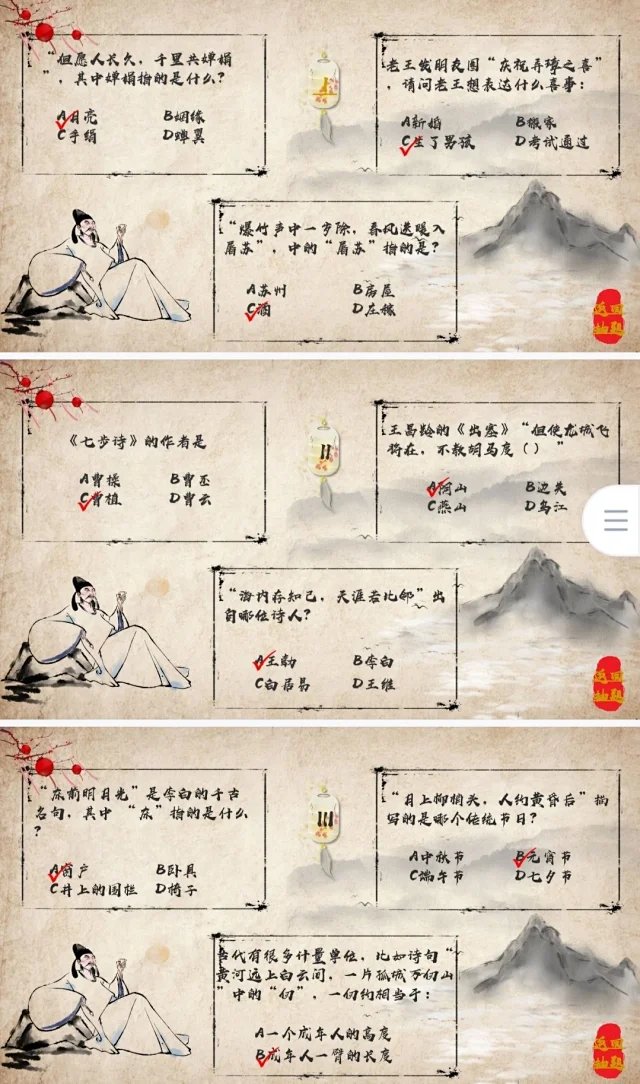 “但愿人长久，千里共婵娟
”，其中婵娟指的是什么？
A月亮 B姻缘
C手绢 D蝉翼
I
老王发朋友圈“庆祝弄璋之喜”
，请问老王想表达什么喜事：
A新婚 B搬家
C生了男孩 D考试通过
“爆竹声中一岁除，春风送暖入
屠苏”，中的“屠苏”指的是？
A苏州 B房屋
C酒 D庄稼
返回
抽题
《七步诗》的作者是
A曹操 B曹丕
C曹植 D曹云
II
王昌龄的《出塞》“但使龙城飞
将在，不教胡马度（）”
A阴山 B边关
C燕山 D乌江
“海内存知己，天涯若比邻”出
自哪位诗人？
A王勃 B李白
C白居易 D王维
返回
抽题
“床前明月光”是李白的千古
名句，其中“床”指的是什么
？
A窗户 B卧具
C井上的围栏 D椅子
III
“月上柳梢头，人约黄昏后”描
写的是哪个传统节日？
A中秋节 B元宵节
C端午节 D七夕节
古代有很多计量单位，比如诗句“
黄河远上白云间，一片孤城万仞山
”中的“仞”，一仞约相当于：
A一个成年人的高度
B成年人一臂的长度
返回
抽题